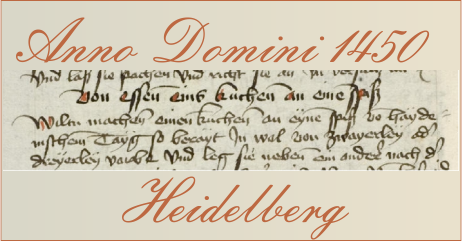 Anno Domini 1450
Und laß sie pachen Und richt sie an
Von essen eins kuchen an eine spiß
Wiltu machen einen kuchen an eyne spiß vo hayde
nischem Tayg so berayt In wol von zwayerley od
dreyerley varbe Und leg sie neben ein ander nach d
Heidelberg